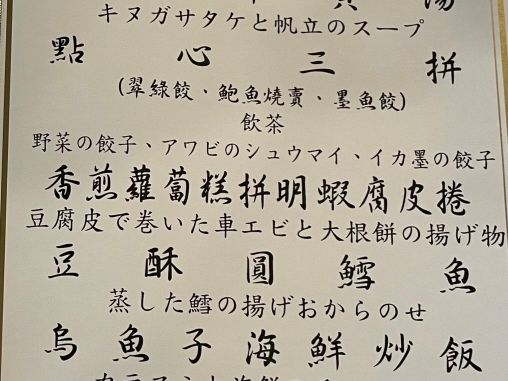 キヌガサタケと帆立のスープ
點心三拼
(翠綠餃、鮑魚燒賣、墨魚餃)
飲茶
野菜の餃子、アワビのシュウマイ、イカ墨の餃子
香煎蘿蔔糕拼明蝦腐皮捲
豆腐皮で巻いた車エビと大根餅の揚げ物
豆酥圓鱈魚
蒸した鱈の揚げおからのせ
烏魚子海鮮炒飯